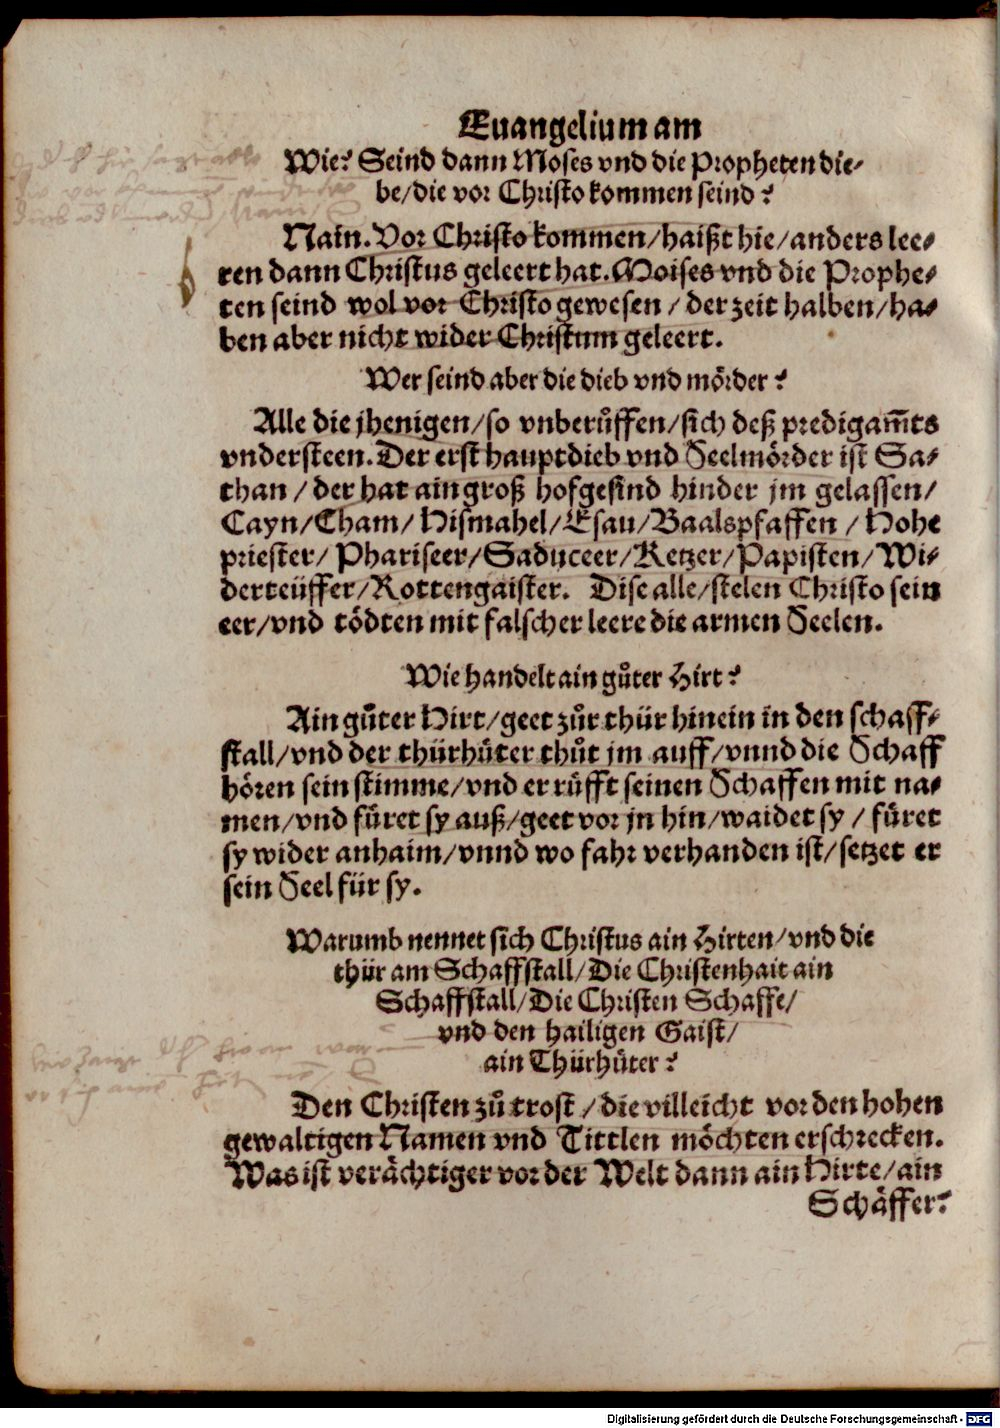 Euangelium am
Wie? Seind dann Moses vnd die Propheten die⸗
be/die vor Christo kommen seind?
Nain. Vor Christo kommen/haißt hie/anders lee⸗
ren dann Christus geleert hat. Moises vnd die Prophe⸗
ten seind wol vor Christo gewesen / der zeit halben/ha⸗
ben aber nicht wider Christum geleert.
Wer seind aber die dieb vnd mörder?
Alle die jhenigen/so vnberůffen/sich deß predigam̅ts
vndersteen. Der erst hauptdieb vnd Seelmörder ist Sa⸗
than / der hat ain groß hofgesind hinder jm gelassen/
Cayn/Cham/Hismahel/Esau/Baalspfaffen / Hohe
priester/ Phariseer/Saduceer/Ketzer/Papisten/Wi⸗
derteüffer/Rottengaister. Dise alle/stelen Christo sein
eer/vnd tödten mit falscher leere die armen Seelen.
Wie handelt ain gůter Hirt?
Ain gůter Hirt/geet zůr thür hinein in den schaff⸗
stall/vnd der thürhůter thůt jm auff/vnnd die Schaff
hören sein stimme/vnd er růfft seinen Schaffen mit na⸗
men/vnd füret sy auß/geet vor jn hin/waidet sy / füret
sy wider anhaim/vnnd wo fahr verhanden ist/setzet er
sein Seel für sy.
Warumb nennet sich Christus ain Hirten/vnd die
thür am Schaffstall/Die Christenhait ain
Schaffstall/Die Christen Schaffe/
vnd den hailigen Gaist/
ain Thürhůter?
Den Christen zů trost / die villeicht vor den hohen
gewaltigen Namen vnd Tittlen möchten erschrecken.
Was ist verächtiger vor der Welt dann ain Hirte/ain
Schäffer?
Digitalisierung gefördert durch die Deutsche Forschungsgemeinschaft - DFG